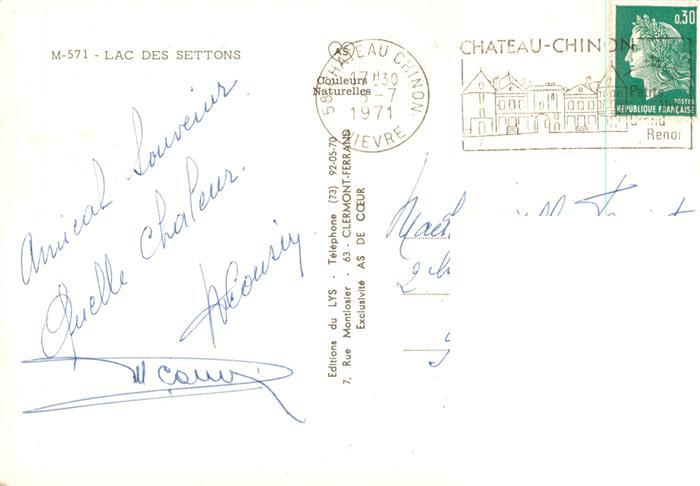 M-571 - LAC DES SETTONS
Amical Souvenir
Quelle chaleur.
AS
Couleurs
Naturelles
58 CHATEAU CHINON
17 H 30
-7
1971
NIEVRE
CHATEAU-CHINON
Petite
Grand
Renom
0,30
POSTES
REPUBLIQUE FRANÇAISE
Editions du LYS - Téléphone (73) 92-05-70
7, Rue Montlosier - 63 - CLERMONT-FERRAND
Exclusivité AS DE CŒUR